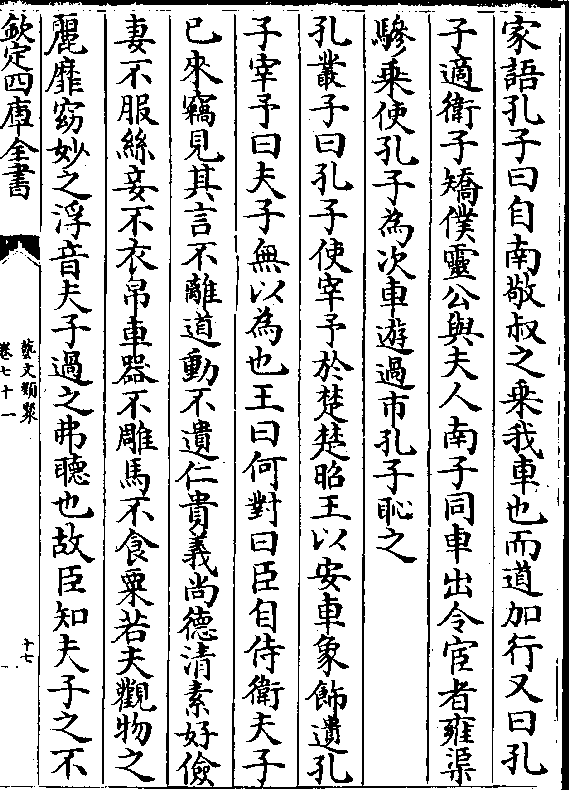 家語孔子曰自南敬叔之乗我車也而道加行又曰孔
子適衛子矯僕靈公與夫人南子同車出令宦者雍渠
驂乗使孔子為次車遊過市孔子恥之
孔叢子曰孔子使宰予於楚楚昭王以安車象飾遺孔
子宰予曰夫子無以為也王曰何對曰臣自侍衛夫子
已來竊見其言不離道動不遺仁貴義尚德清素好儉
妻不服絲妾不衣帛車器不雕馬不食粟若夫觀物之
麗靡窈妙之浮音夫子過之弗聽也故臣知夫子之不
欽定四庫全書
藝文類聚
卷七十一
十七